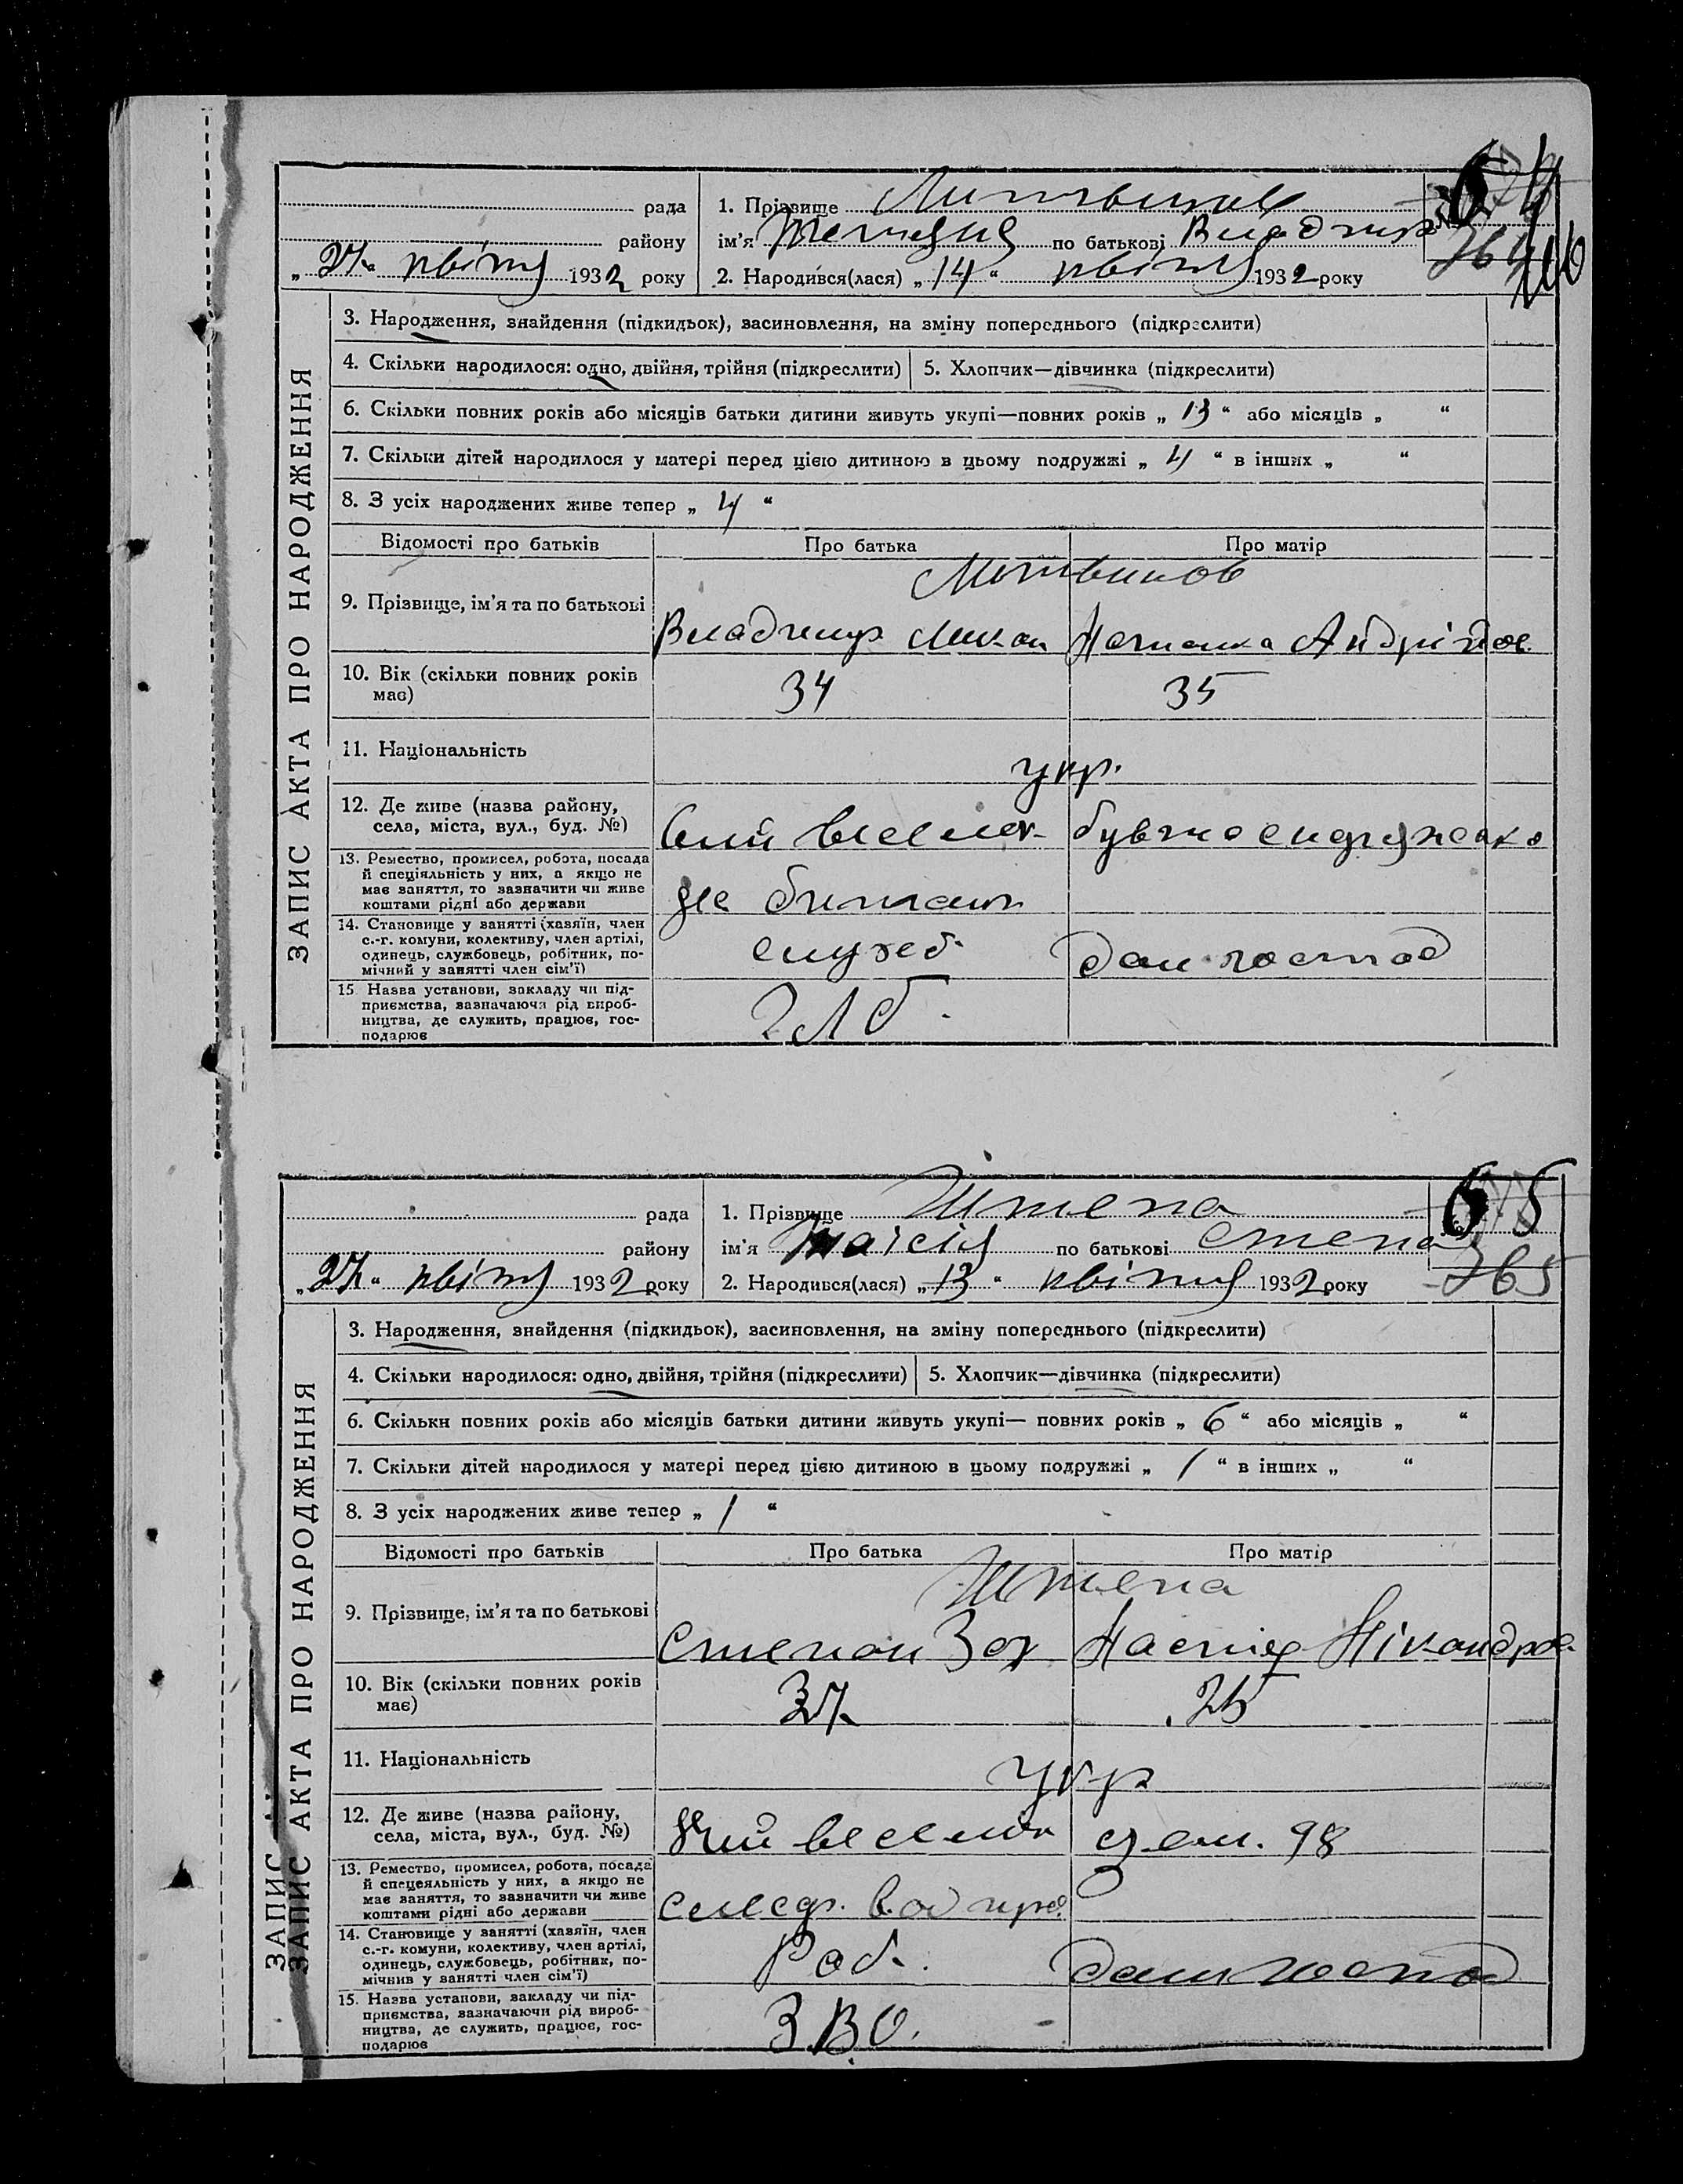 рада
1. Прізвище Литвинов
району
ім'я по батькові Владимир
„27“ квітня 1932 року
2. Народився(лася) „14“ квітня 1932 року
ЗАПИС АКТА ПРО НАРОДЖЕННЯ
3. Народження, знайдення (підкидьок), засиновлення, на зміну попереднього (підкреслити)
4. Скільки народилося: одно, двійня, трійня (підкреслити)
5. Хлопчик—дівчинка (підкреслити)
6. Скільки повних років або місяців батьки дитини живуть укупі—повних років „13“ або місяців „ “
7. Скільки дітей народилося у матері перед цією дитиною в цьому подружжі „4“ в інших „ “
8. З усіх народжених живе тепер „4“
Відомості про батьків
Про батька
Про матір
Литвинов
9. Прізвище, ім'я та по батькові
Владимир Микол
Андріївов
10. Вік (скільки повних років має)
34
35
11. Національність
укр.
12. Де живе (назва району, села, міста, вул., буд. №)
13. Ремество, промисел, робота, посада й спеціяльність у них, а якщо не має заняття, то зазначити чи живе коштами рідні або держави
14. Становище у занятті (хазяїн, член с.-г. комуни, колективу, член артілі, одинець, службовець, робітник, помічний у занятті член сім'ї)
служб.
дом господ
15. Назва установи, закладу чи підприємства, зазначаючи рід виробництва, де служить, працює, господарює
65
рада
1. Прізвище Штепа
району
ім'я Таісія по батькові Степа
765
„27“ квітня 1932 року
2. Народився(лася) „13“ квітня 1932 року
ЗАПИС АКТА ПРО НАРОДЖЕННЯ
3. Народження, знайдення (підкидьок), засиновлення, на зміну попереднього (підкреслити)
4. Скільки народилося: одно, двійня, трійня (підкреслити)
5. Хлопчик—дівчинка (підкреслити)
6. Скільки повних років або місяців батьки дитини живуть укупі— повних років „6“ або місяців „ “
7. Скільки дітей народилося у матері перед цією дитиною в цьому подружжі „1“ в інших „ “
8. З усіх народжених живе тепер „1“
Відомості про батьків
Про батька
Про матір
Штепа
9. Прізвище, ім'я та по батькові
Степан Зах
Настя Нікандров
10. Вік (скільки повних років має)
37
25
11. Національність
укр
12. Де живе (назва району, села, міста, вул., буд. №)
98
13. Ремество, промисел, робота, посада й спецеяльність у них, а якщо не має заняття, то зазначити чи живе коштами рідні або держави
14. Становище у занятті (хазяїн, член с.-г. комуни, колективу, член артілі, одинець, службовець, робітник, помічнив у занятті член сім'ї)
Роб.
дом господ
15. Назва установи, закладу чи підприємства, зазначаючи рід виробництва, де служить, працює, господарюв
З.В.О.
ЗАПИС